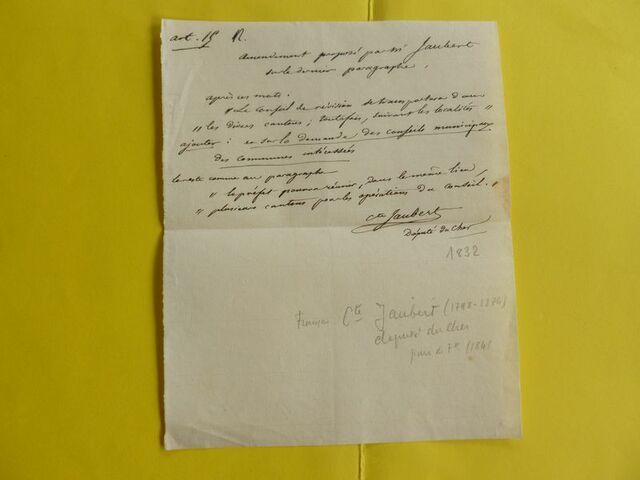 art. 15 R.
amendement proposé par Mr Jaubert
sur le dernier paragraphe.
après ces mots :
" Le Conseil de révision se transportera dans
" les divers cantons ; toutefois, suivant les localités "
ajouter : et sur la demande des conseils municipaux
des communes intéressées
le reste comme au paragraphe
" le préfet pourra réunir, dans le même lieu,
" plusieurs cantons pour les opérations du conseil. "
Cte Jaubert
Député du Cher
1832
François Cte Jaubert (1798-1874)
député du Cher
pair de Fce (1844